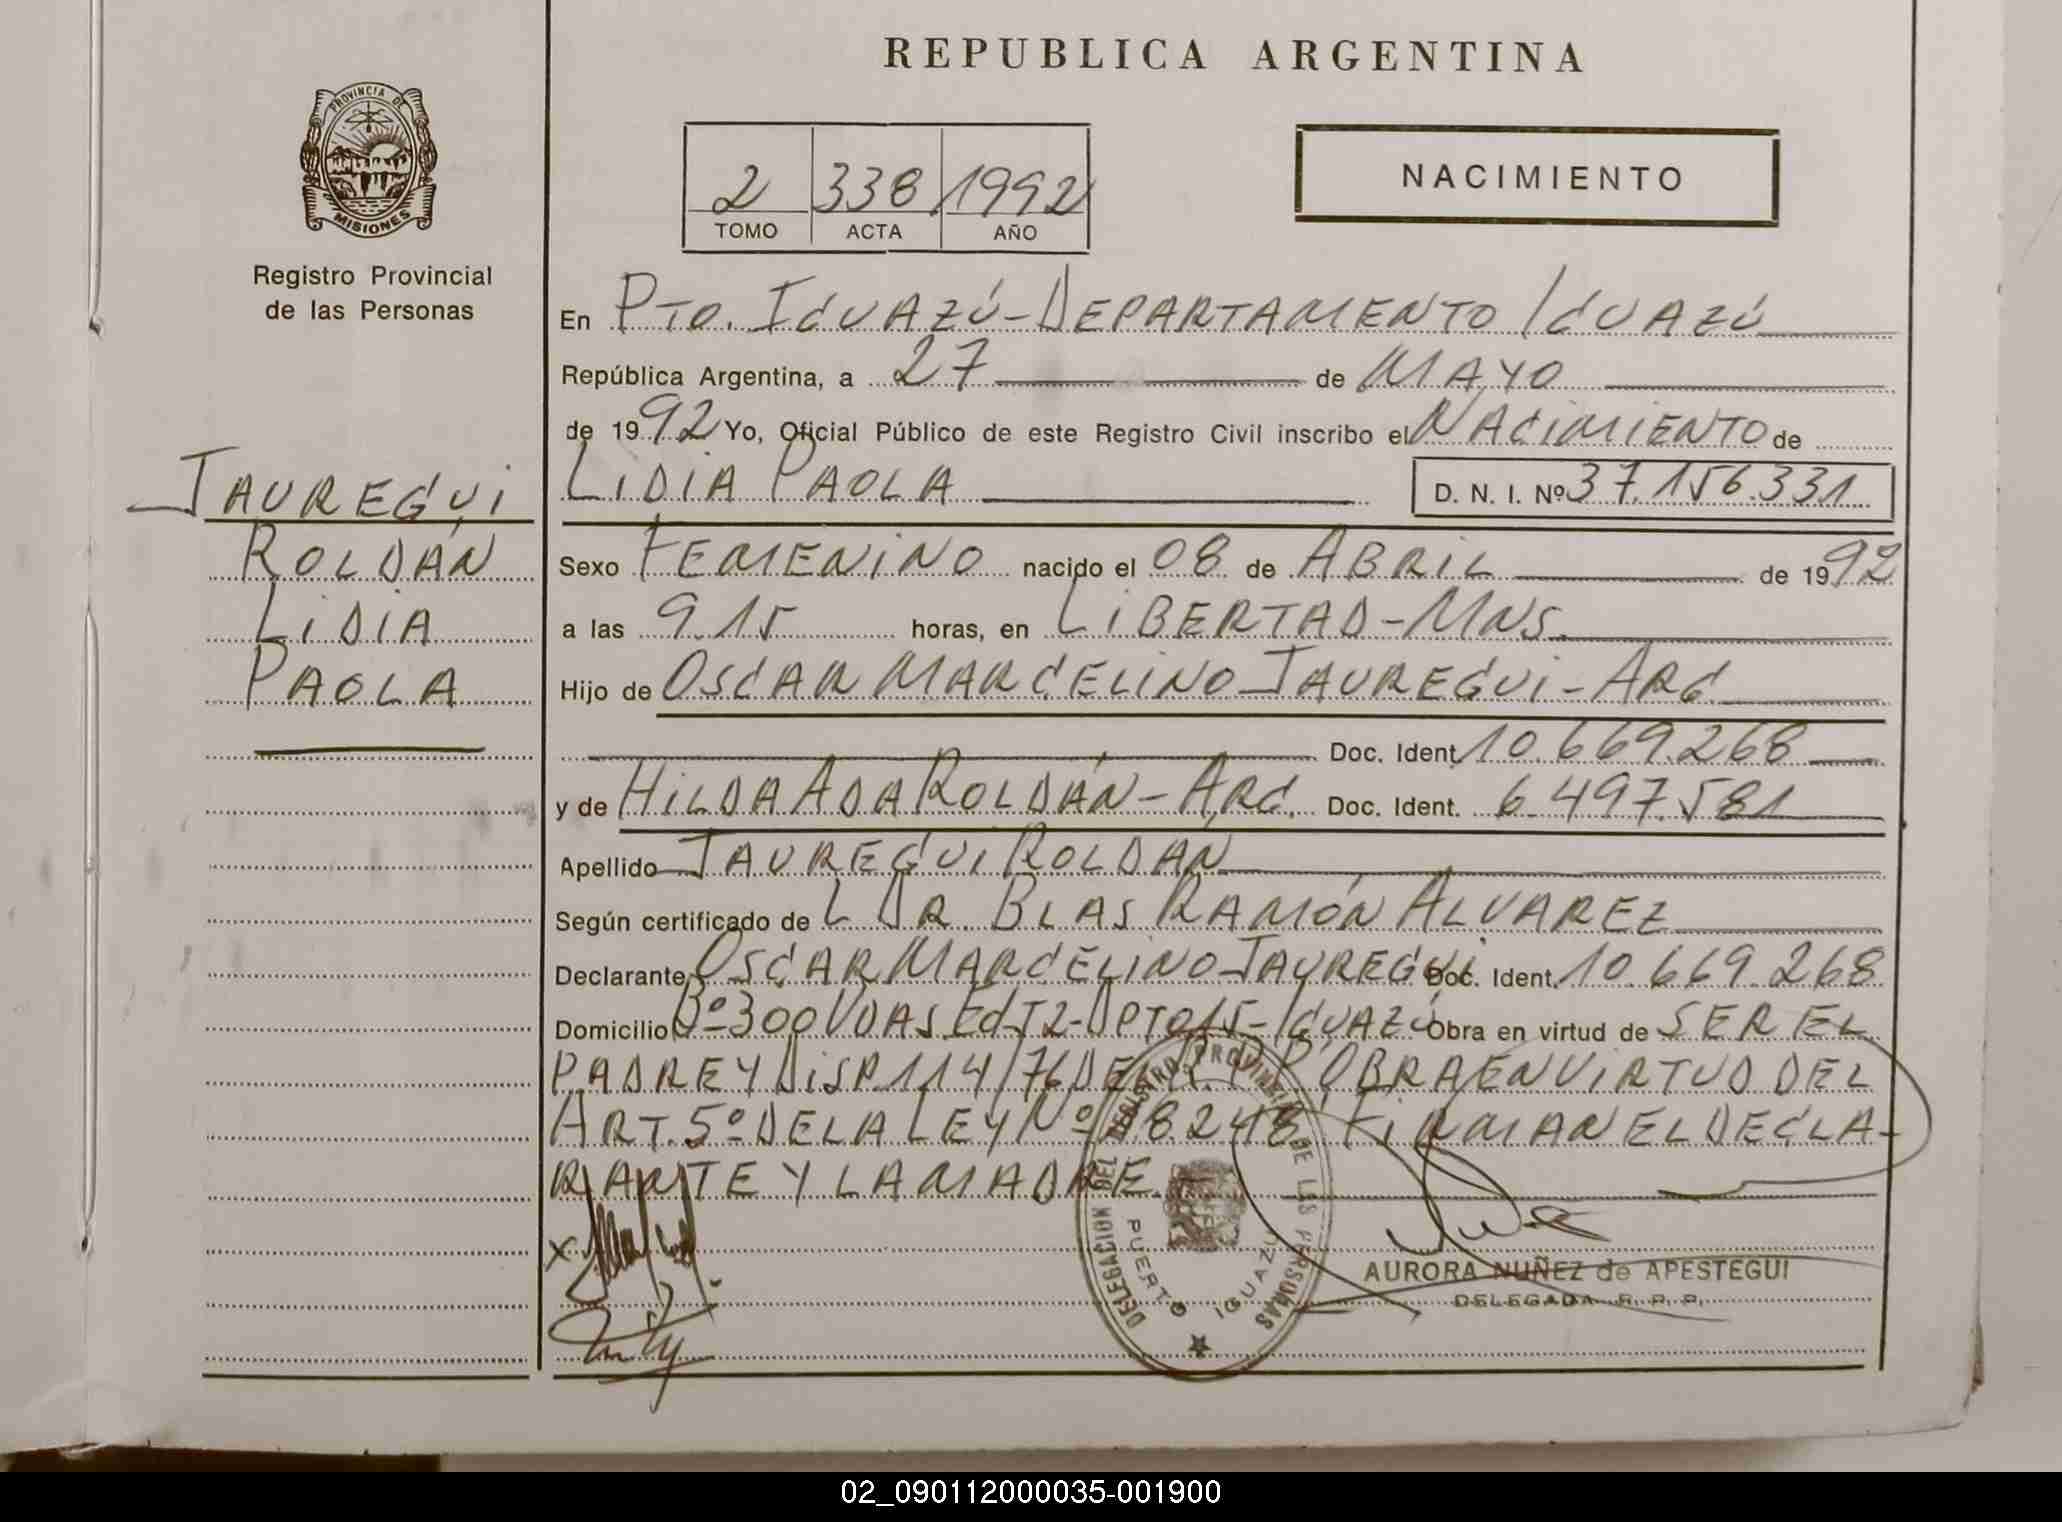 REPUBLICA ARGENTINA
PROVINCIA DE
MISIONES
Registro Provincial
de las Personas
2 338 1992
TOMO ACTA AÑO
NACIMIENTO
JAUREGUI
ROLDÁN
LIDIA
PAOLA
En PTO. IGUAZÚ-DEPARTAMENTO IGUAZÚ
República Argentina, a 27 de MAYO
de 1992 Yo, Oficial Público de este Registro Civil inscribo el NACIMIENTO de
LIDIA PAOLA D. N. I. Nº 37.156.331
Sexo FEMENINO nacido el 08 de ABRIL de 1992
a las 9.15 horas, en LIBERTAD-MNS.
Hijo de OSCAR MARCELINO JAUREGUI-ARG
Doc. Ident. 10.669.268
y de HILDA ADA ROLDÁN-ARG. Doc. Ident. 6.497.581
Apellido JAUREGUI ROLDÁN
Según certificado de L DR. BLAS RAMÓN ALVAREZ
Declarante OSCAR MARCELINO JAUREGUI Doc. Ident. 10.669.268
Domicilio Bº 300 VDAS Ed-T2-DPTO15-IGUAZÚ Obra en virtud de SER EL
PADRE Y DISP. 114/76 DEL R.P.P. OBRA EN VIRTUD DEL
ART. 5º DE LA LEY Nº 18.248. FIRMAN EL DECLA-
RANTE Y LA MADRE.
DELEGACION DEL REGISTRO PROVINCIAL DE LAS PERSONAS
PUERTO IGUAZU
AURORA NUÑEZ de APESTEGUI
DELEGADA R. P. P.
02_090112000035-001900